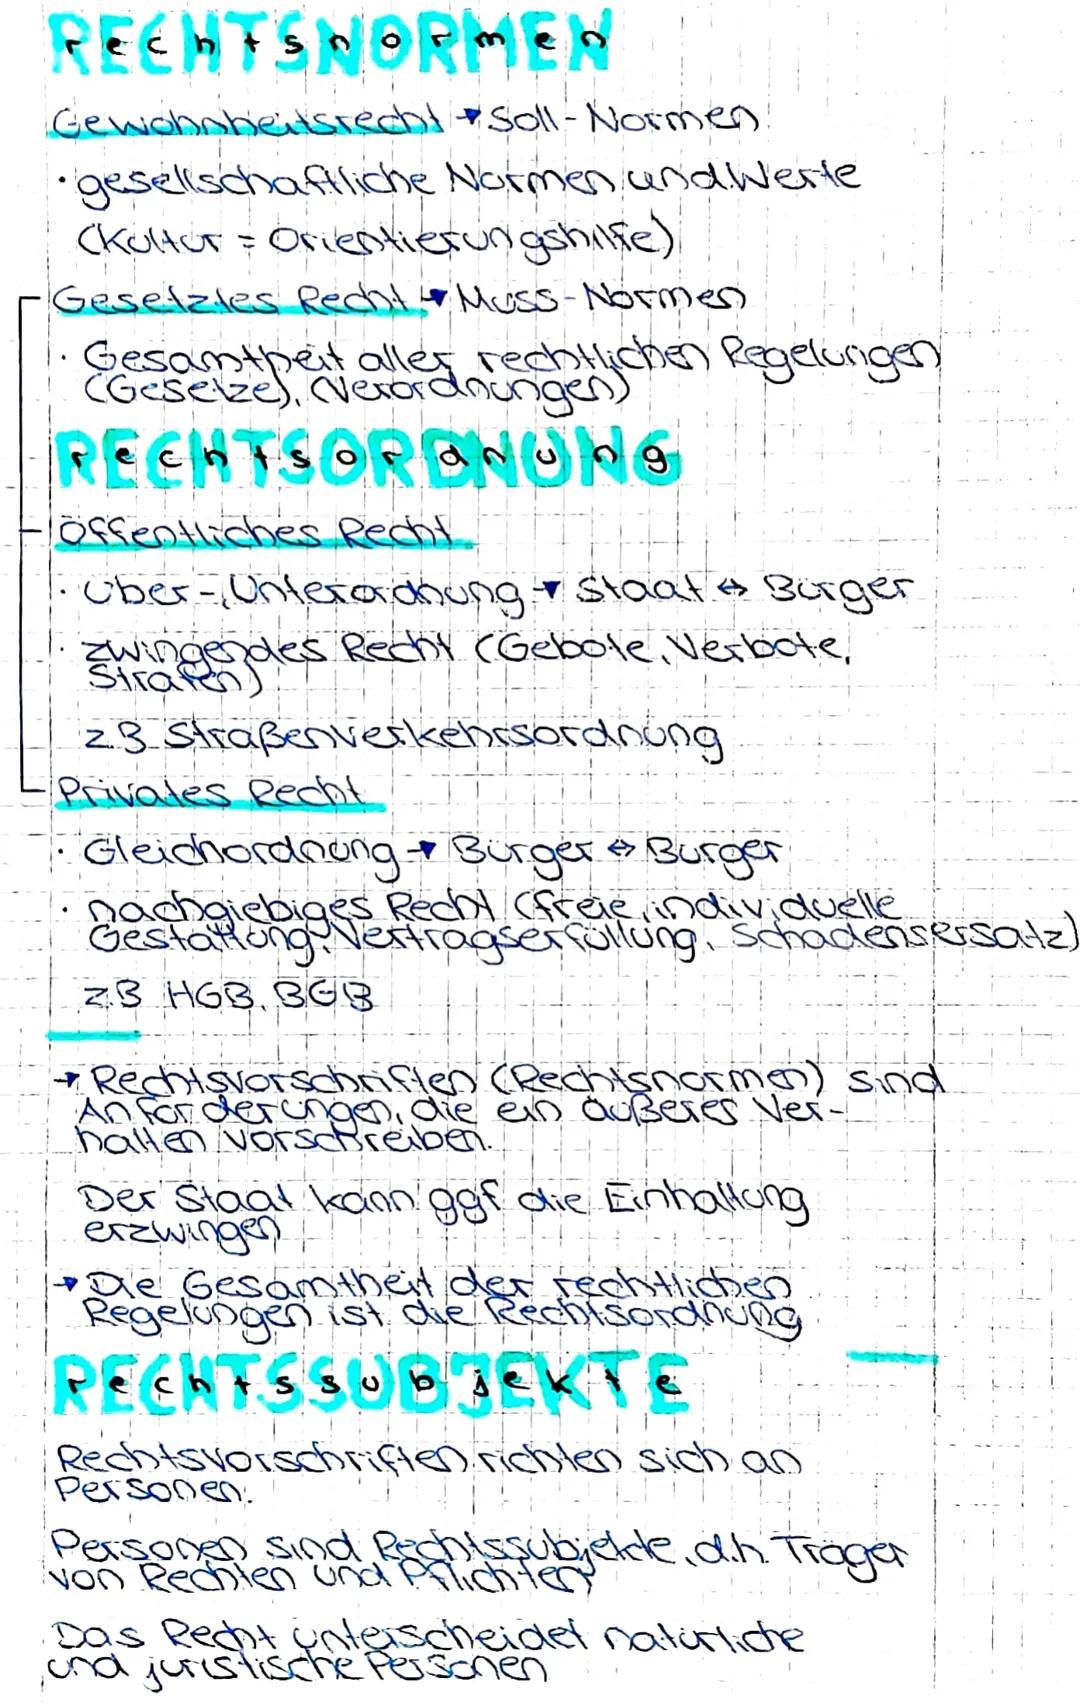 RECHTSNORMEN
Gewohnheitsrecht → Soll-Normen
· gesellschaftliche Normen und Werte
(Kultur = Orientierungshilfe)
Gesetztes Recht → Muss-Normen
· Gesamtheit aller rechtlichen Regelungen
(Gesetze), (Verordnungen)
RECHTSORDNUNG
Öffentliches Recht
· Über-, Unterordnung → Staat ↔ Bürger
· zwingendes Recht (Gebote, Verbote,
Strafen)
z.B Straßenverkehrsordnung
Privates Recht
· Gleichordnung → Bürger ↔ Bürger
· nachgiebiges Recht (freie, individuelle
Gestaltung, Vertragserfüllung, Schadensersatz)
z.B HGB, BGB
→ Rechtsvorschriften (Rechtsnormen) sind
Anforderungen, die ein äußeres Ver-
halten vorschreiben.
Der Staat kann ggf die Einhaltung
erzwingen
→ Die Gesamtheit der rechtlichen
Regelungen ist die Rechtsordnung
RECHTSSUBJEKTE
Rechtsvorschriften richten sich an
Personen.
Personen sind Rechtssubjekte, d.h. Träger
von Rechten und Pflichten
Das Recht unterscheidet natürliche
und juristische Personen